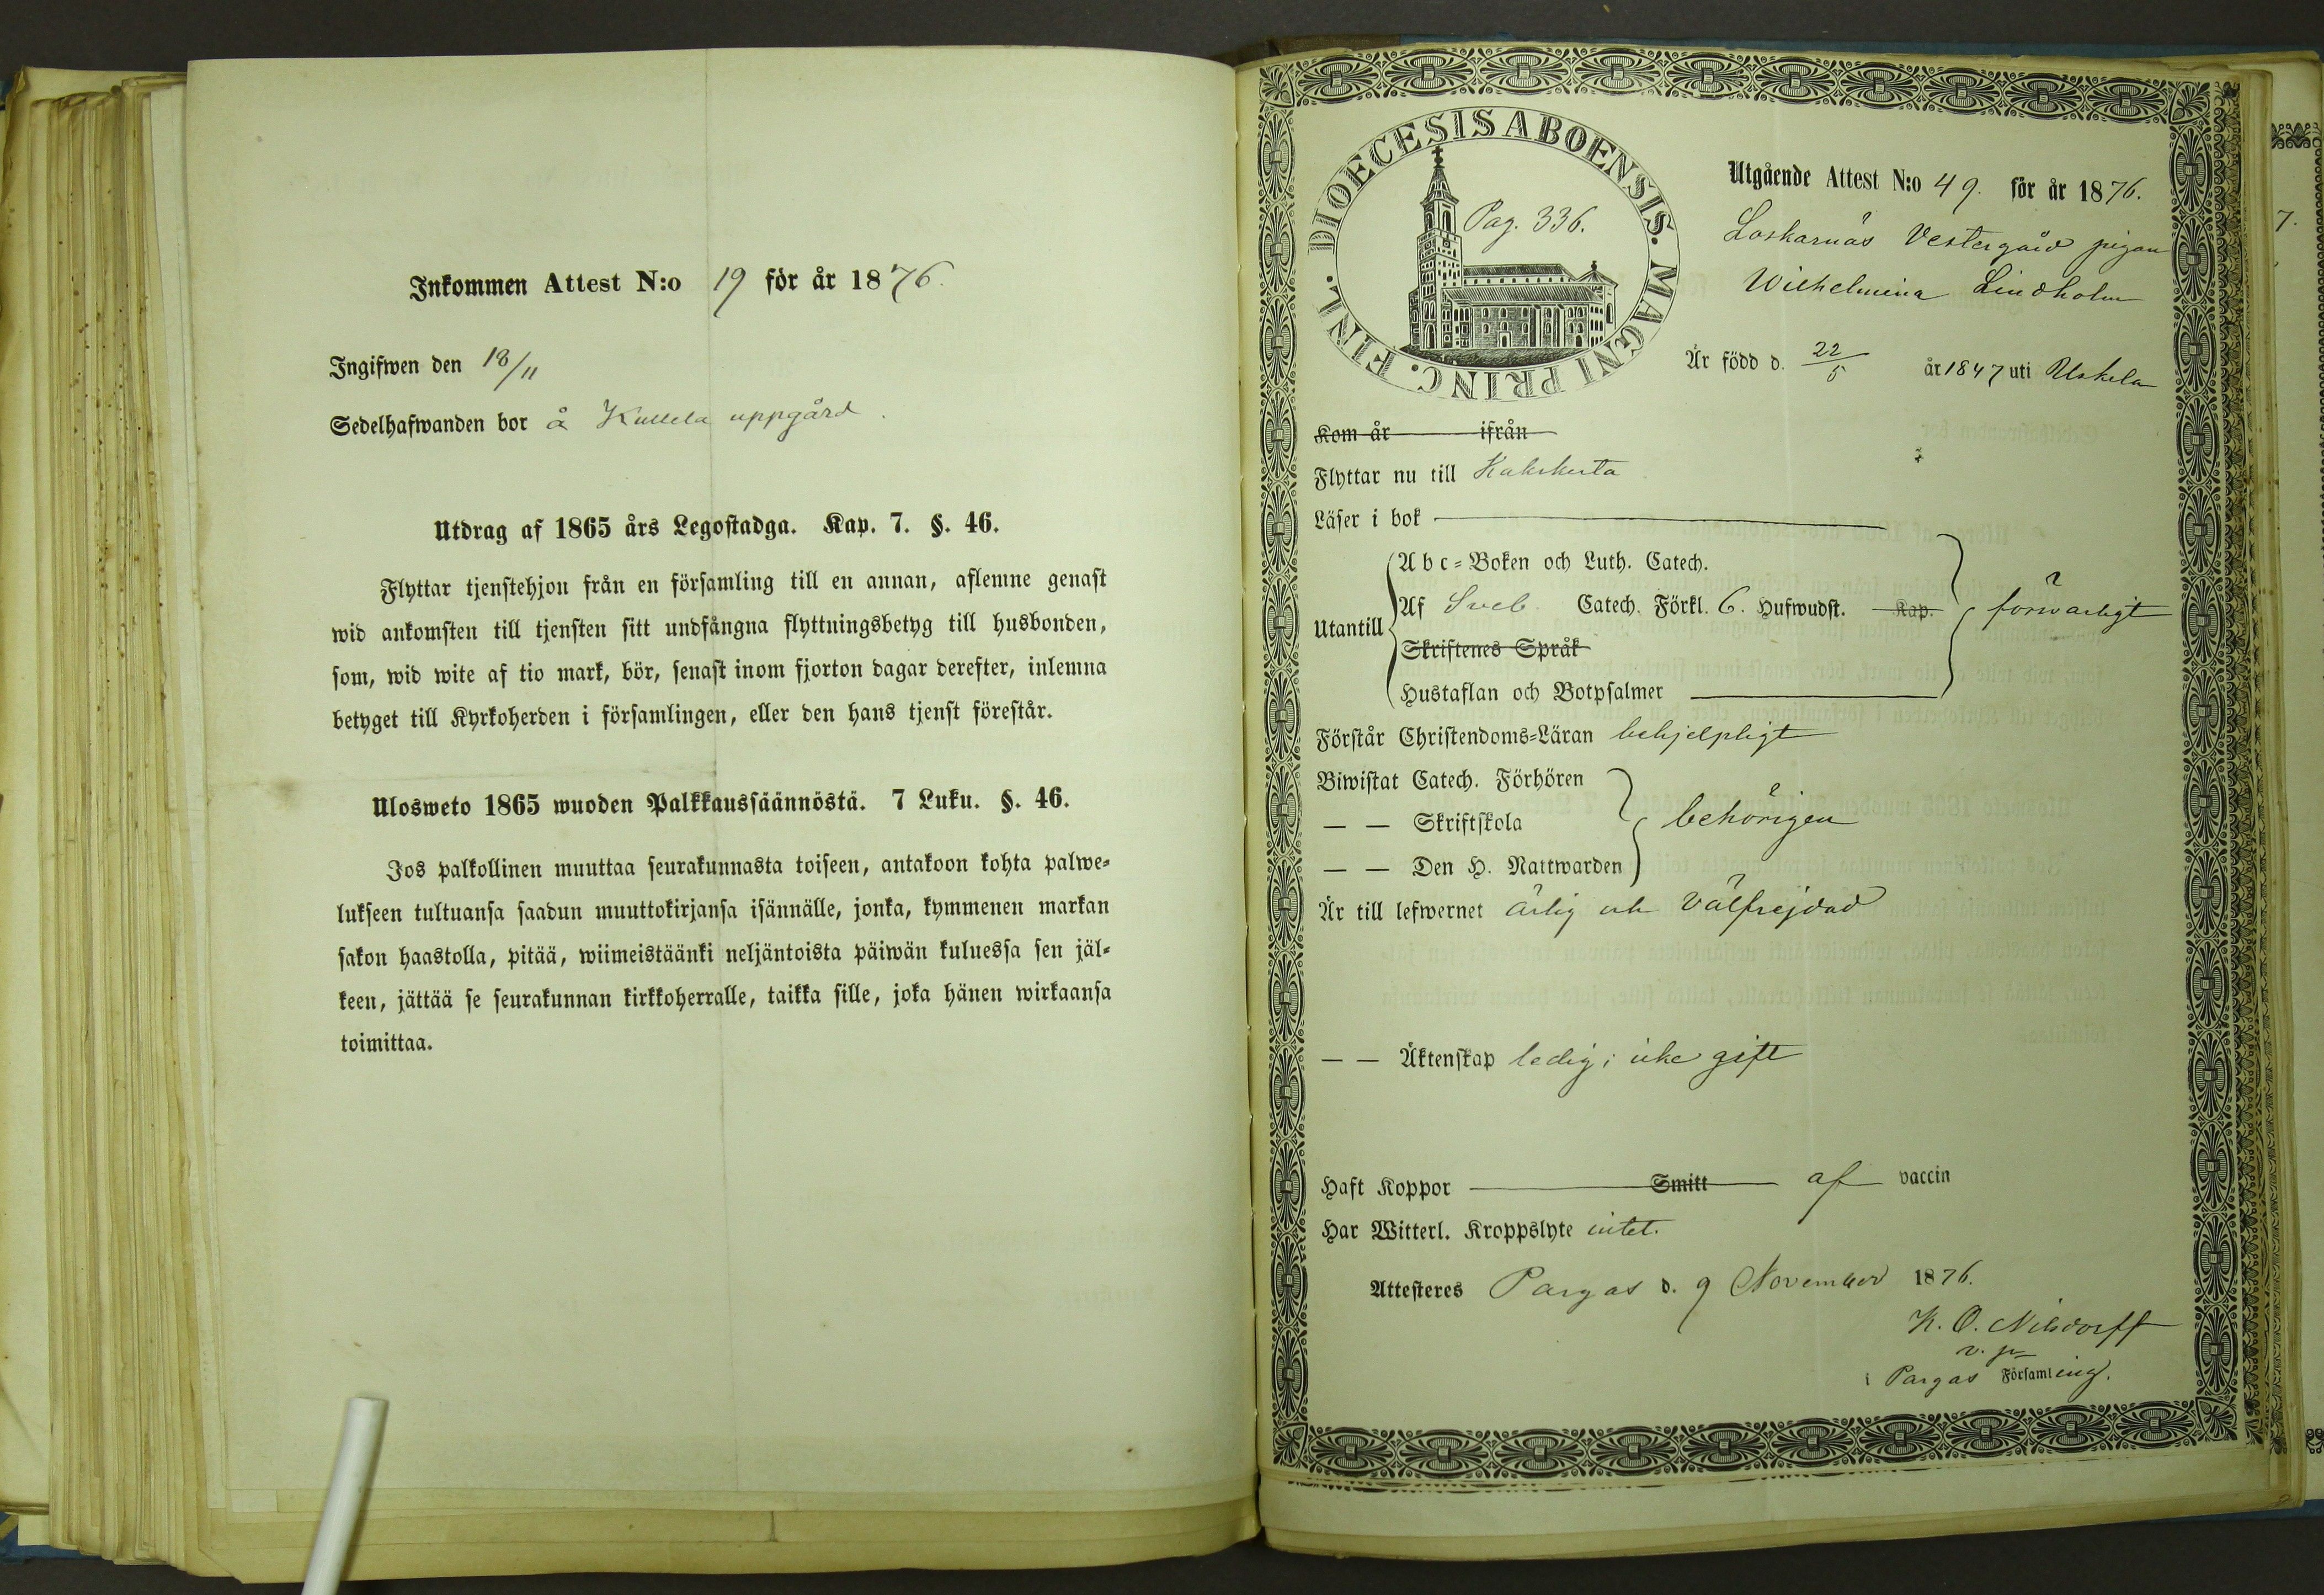 Inkommen Attest N:o 19 för år 1876.
Ingifwen den 18/11
Sedelhafwanden bor å Kullela uppgård.
Utdrag af 1865 års Legostadga. Kap. 7. §. 46.
Flyttar tjenstehjon från en församling till en annan, aflemne genast
wid ankomsten till tjensten sitt undfångna flyttningsbetyg till husbonden,
som, wid wite af tio mark, bör, senast inom fjorton dagar derefter, inlemna
betyget till Kyrkoherden i församlingen, eller den hans tjenst förestår.
Ulosweto 1865 wuoden Palkkaussäännöstä. 7 Luku. §. 46.
Jos palkollinen muuttaa seurakunnasta toiseen, antakoon kohta palwe-
lukseen tultuansa saadun muuttokirjansa isännälle, jonka, kymmenen markan
sakon haastolla, pitää, wiimeistäänki neljäntoista päiwän kuluessa sen jäl-
keen, jättää se seurakunnan kirkkoherralle, taikka sille, joka hänen wirkaansa
toimittaa.
DIOECESIS ABOENSIS. MAGNI PRINC. FINL.
Pag. 336.
Utgående Attest N:o 49. för år 1876.
Loskarnäs Vestergård pigan
Wilhelmina Lindholm
Är född d. 22/5 år 1847 uti Uskela
Kom år ifrån
Flyttar nu till Kakskerta
Läser i bok
Utantill
A b c-Boken och Luth. Catech.
Af Sveb. Catech. Förkl. 6. Hufwudst. Kap. försvarligt
Skriftenes Språk
Hustaflan och Botpsalmer
Förstår Christendoms-Läran behjelpligt
Biwistat Catech. Förhören
— — Skriftskola behörigen
— — Den H. Nattwarden
Är till lefwernet ärlig och välfrejdad
— — Äktenskap ledig; icke gift
Haft Koppor Smitt af vaccin
Har Witterl. Kroppslyte intet.
Attesteres Pargas d. 9 November 1876.
K. O. Nilsdorff
v. p.
i Pargas Församling.